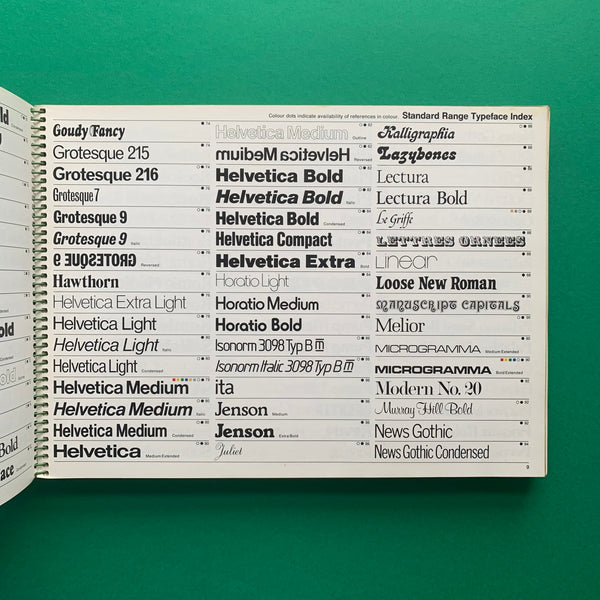 Colour dots indicate availability of references in colour. Standard Range Typeface Index
Goudy Fancy
Grotesque 215
Grotesque 216
Grotesque 7
Grotesque 9
Grotesque 9 Italic
Grotesque 9 Reversed
Hawthorn
Helvetica Extra Light
Helvetica Light
Helvetica Light Italic
Helvetica Light Condensed
Helvetica Medium
Helvetica Medium Italic
Helvetica Medium Condensed
Helvetica Medium Extended
Helvetica Medium Outline
Helvetica Medium Reversed
Helvetica Bold
Helvetica Bold Italic
Helvetica Bold Condensed
Helvetica Compact
Helvetica Extra Bold
Horatio Light
Horatio Medium
Horatio Bold
Isonorm 3098 Typ B
Isonorm Italic 3098 Typ B
ita
Jenson Medium
Jenson Extra Bold
Juliet
Kalligraphia
Lazybones
Lectura
Lectura Bold
Le Griffe
LETTRES ORNEES
Linear
Loose New Roman
MANUSCRIPT CAPITALS
Melior
MICROGRAMMA Medium Extended
MICROGRAMMA Bold Extended
Modern No. 20
Murray Hill Bold
News Gothic
News Gothic Condensed
9